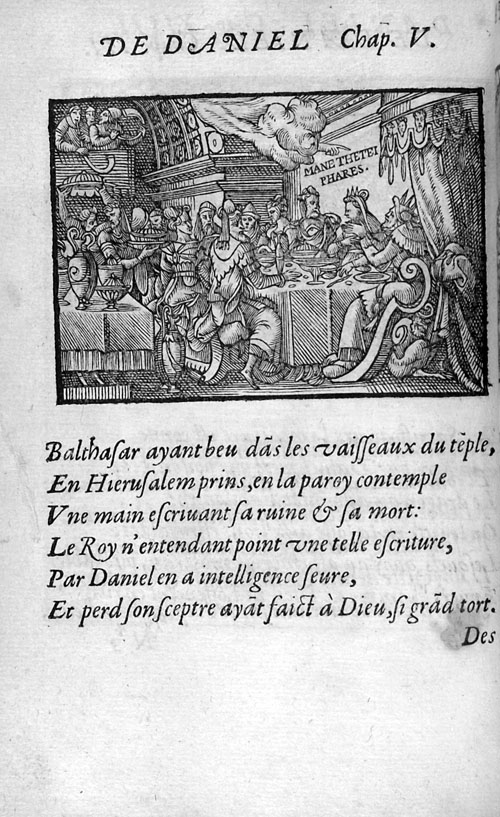 DE DANIEL Chap. V.
MANE THETEI
PHARES.
Balthaſar ayant beu dãs les vaiſſeaux du tẽple,
En Hieruſalem prins, en la paroy contemple
Vne main eſcriuant ſa ruine & ſa mort:
Le Roy n'entendant point vne telle eſcriture,
Par Daniel en a intelligence ſeure,
Et perd ſon ſceptre ayãt faict à Dieu, ſi grãd tort.
Des